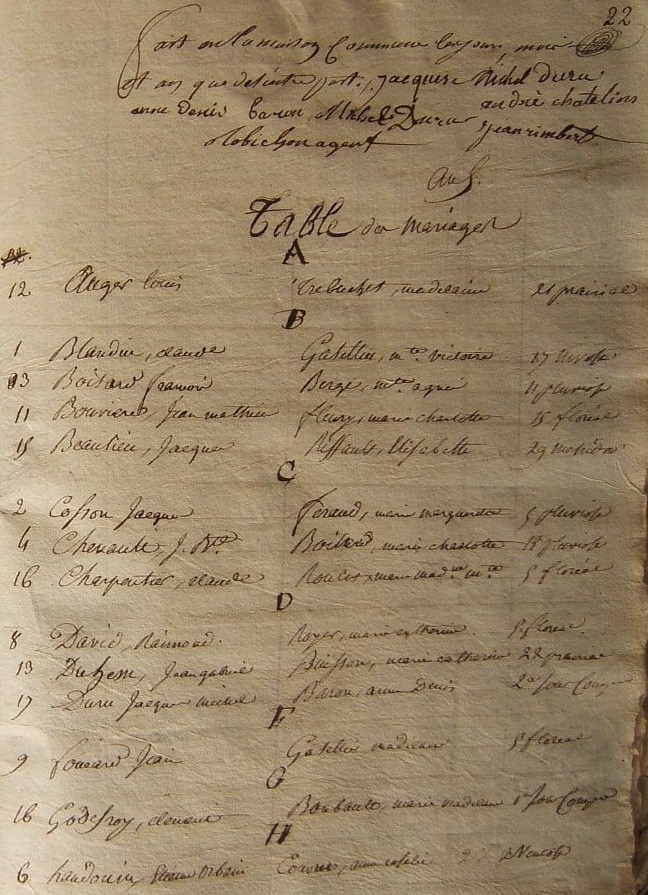 22
fait en la maison Commune les jour, mois
et an que dessus
jacques Michel duru
anne denis baron Michel Duru andré chatelins
Robichon agent jean rimbert
An 5.
Table des mariages
A
12 Auger louis Trebuchet, madelaine 21 prairial
B
1 Blandin, claude Gatellier, m.te victoire 17 nivose
13 Boitard françois Bergé, m.te agnes 11 pluviose
11 Bouvieres, Jean mathieu fleury, marie charlotte 15 floréal
15 Beaulieu, Jacques Riffault, Elisabette 29 messidor
C
2 Cosson Jacques Feraud, marie marguerite 5 pluviose
4 Chenault, J. B.te Boitard, marie charlotte 18 pluviose
16 Charpentier, claude marie mad.ne 5 floréal
D
8 David, Raimond. Royer, marie catherine 5 floreal.
13 Duhesm, Jean gabriel Buisson, marie catherine 22 prairial
17 Duru Jacques michel Baron, anne Denis 2e Jour Comp
F
9 foucard Jean Gatellier madelaine 5 floreal
G
16 Godefroy, clement Boubault, marie madelaine 1er Jour Comp
H
6 haudouin, Etienne Urbain anne rosalie 2 Ventose